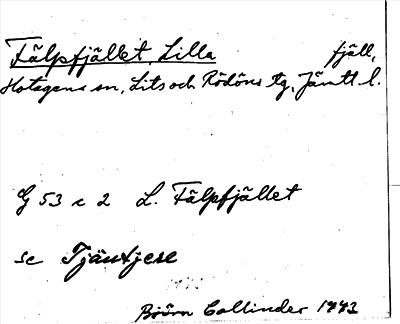 Fälpfjället, Lilla fjäll,
Hotagens sn, Lits och Rödöns tg, Jämtl l.
G 53 c 2 L. Fälpfjället
se Tjäutjere
Björn Collinder 1943